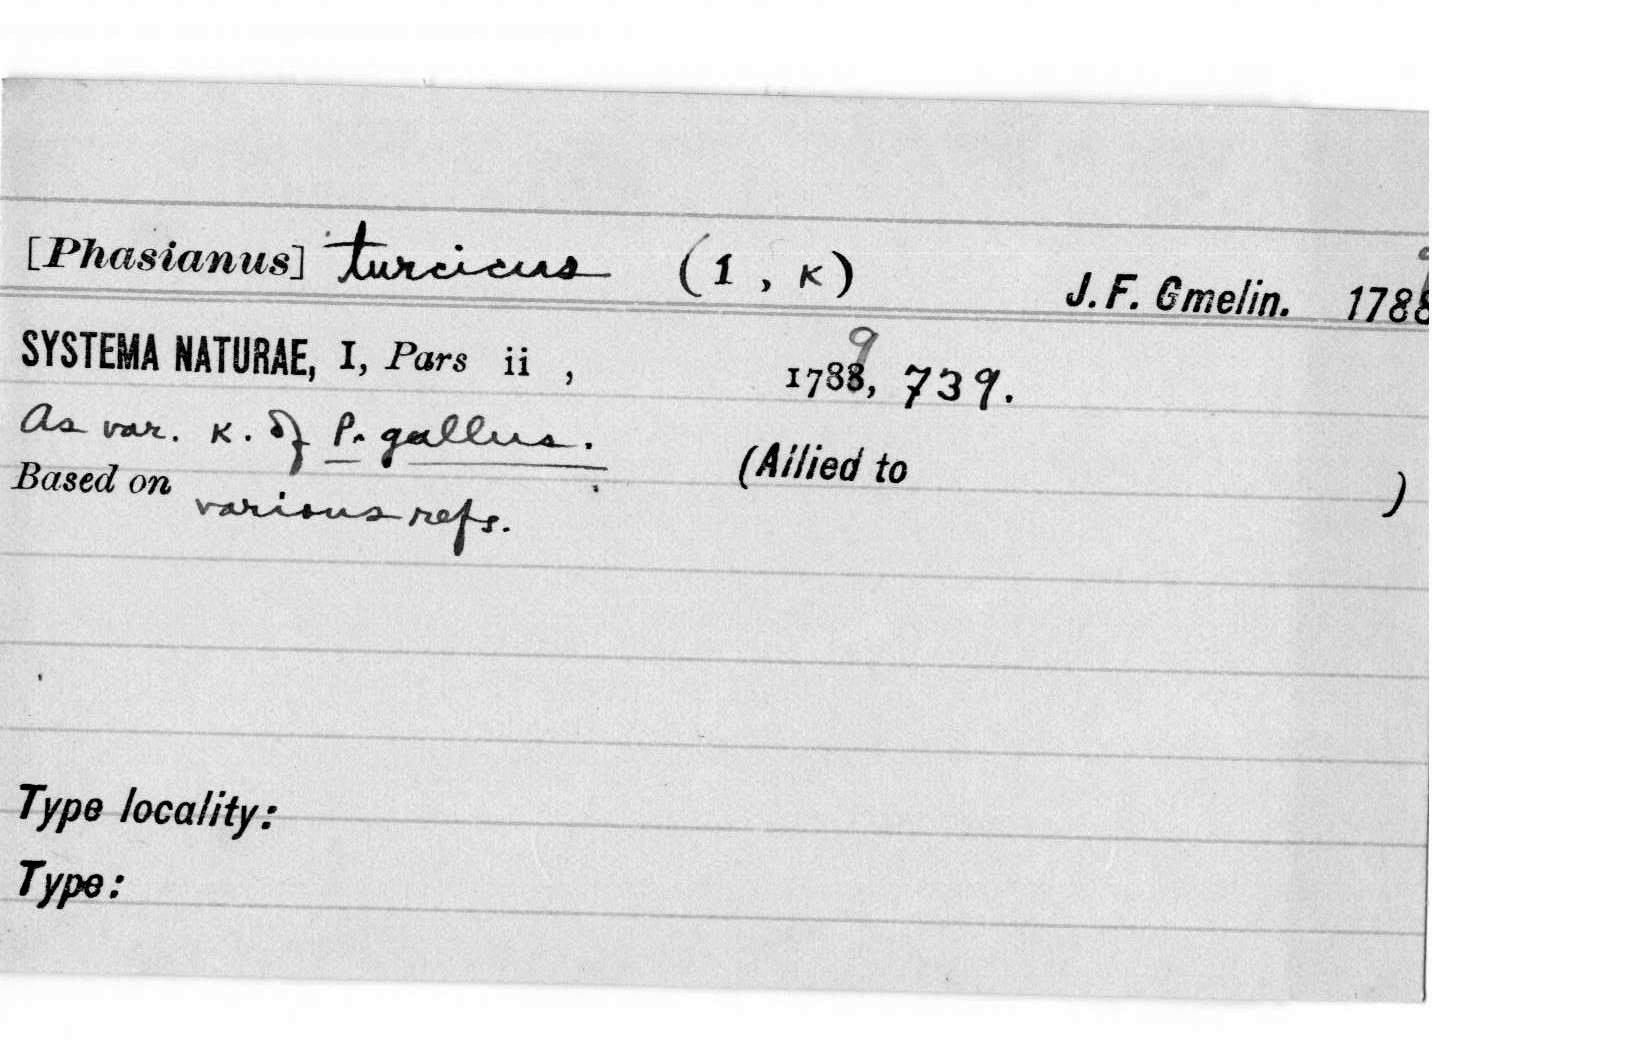 [Phasianus] turcicus (1, κ) J. F. Gmelin. 1788 9
SYSTEMA NATURAE, I, Pars ii , 1788 9, 739.
As var. κ. of P. gallus.
Based on various refs. (Allied to )
Type locality:
Type: